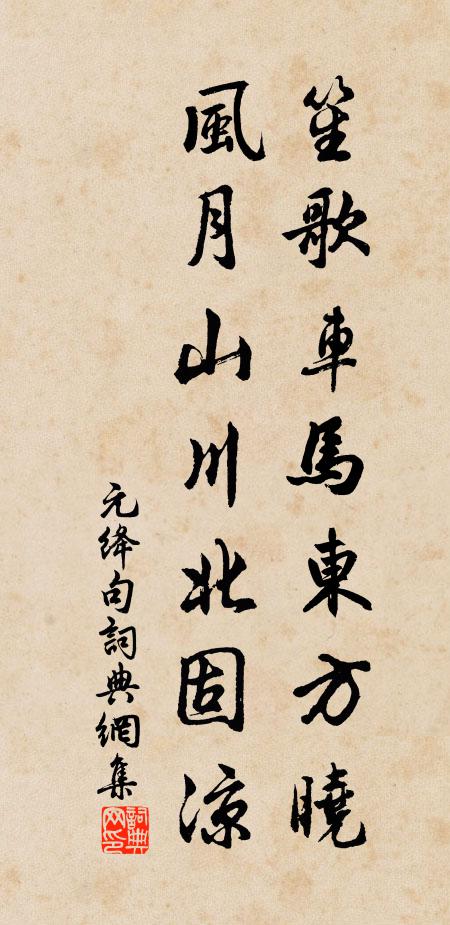 笙歌車馬東方曉
風月山川北固涼
元絳句詞典網集
詞典網印